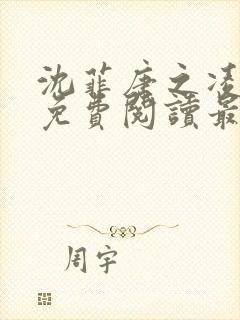 沈菲唐之凌
免費閱讀最
周宇